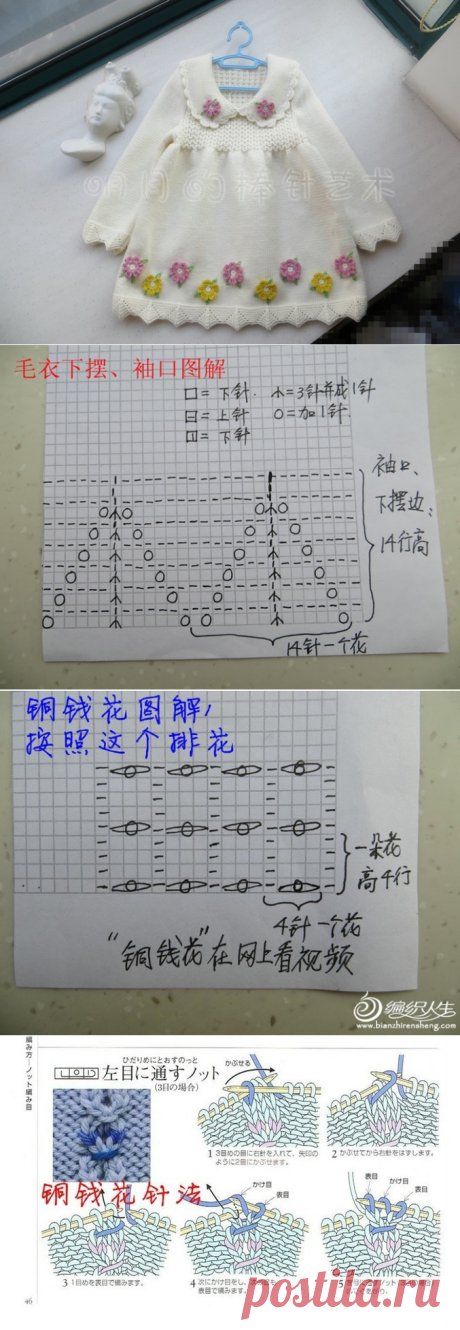 明月的棒针艺术
毛衣下摆、袖口图解
口 = 下针. 木 = 3针并成1针
曰 = 上针 O = 加1针.
= 下针
袖口、
下摆边:
14行高
14针一个花
铜钱花图解,
按照这个排花
一朵花
高4行
4针一个花
"铜钱花"在网上看视频
编织人生
www.bianzhirensheng.com
編み方…ノット編み目
ひだりめにとおすのっと
左目に通すノット
(3目の場合)
かぶせる
1 3目めの目に右針を入れて、矢印の
ように2目にかぶせます。
2 かぶせてから右針をはずします。
铜钱花针法
表目
かけ目
表目
かけ目
表目
3 1目めを表目で編みます。
4 次にかけ目をし、
表目で編みます。
46
postila.ru